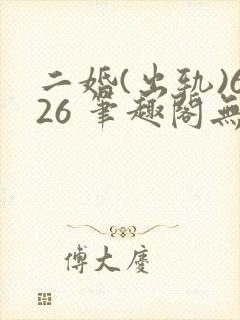 二婚(出轨)6
26 筆趣閣無
傅大慶